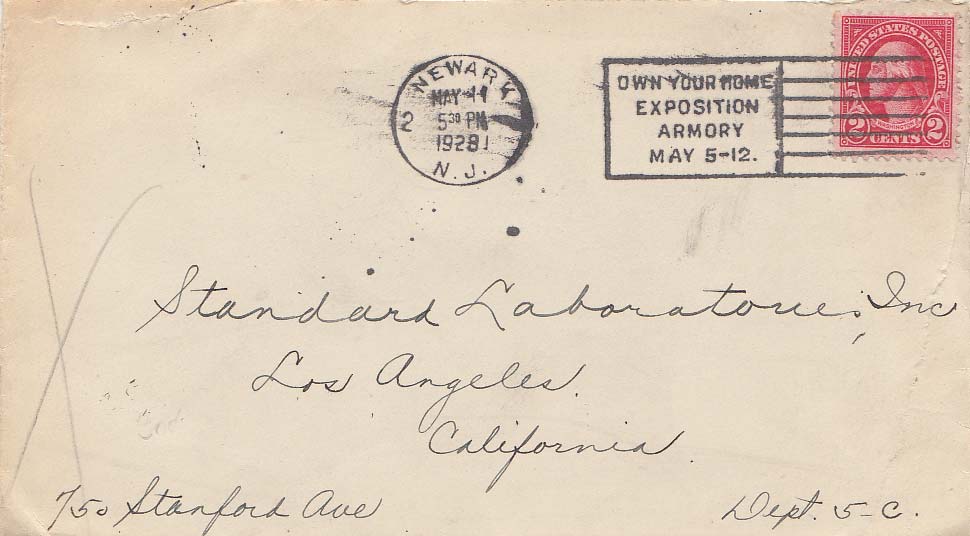 NEWARK
MAY 11
5 30 PM
1928
N. J.
2
OWN YOUR HOME
EXPOSITION
ARMORY
MAY 5-12.
UNITED STATES POSTAGE
WASHINGTON
2 CENTS 2
Standard Laboratories, Inc
Los Angeles
California
750 Stanford Ave
Dept. 5-C.